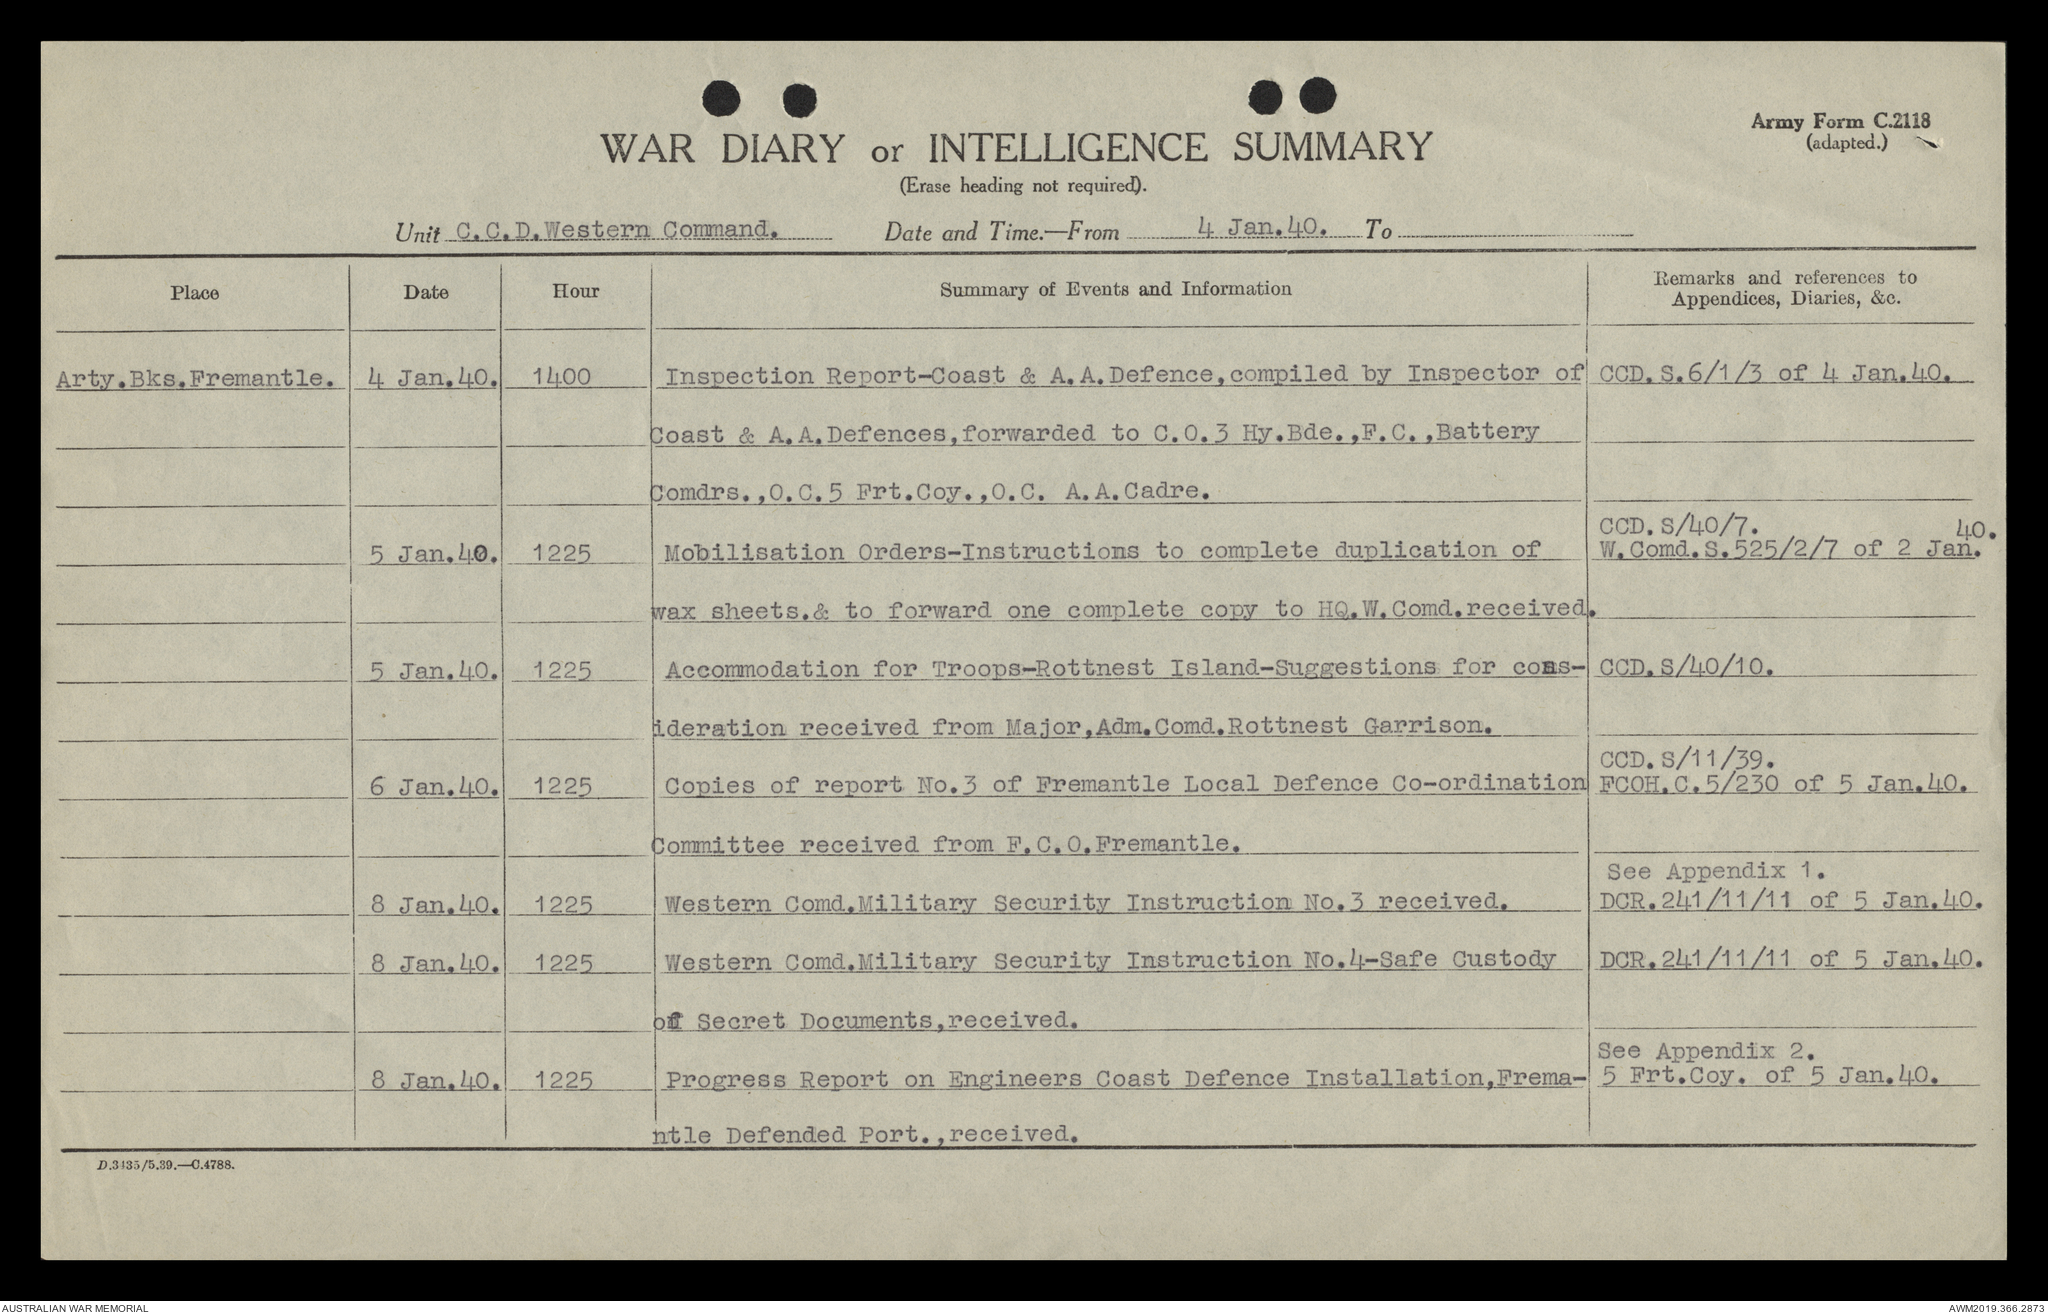 Army Form C.2118
(adapted.)
WAR DIARY or INTELLIGENCE SUMMARY
(Erase heading not required).
Unit C.C.D.Western Command. Date and Time.—From 4 Jan.40. To
Place Date Hour Summary of Events and Information Remarks and references to Appendices, Diaries, &c.
Arty.Bks.Fremantle. 4 Jan.40. 1400 Inspection Report-Coast & A.A.Defence,compiled by Inspector of CCD.S.6/1/3 of 4 Jan.40.
Coast & A.A.Defences,forwarded to C.O.3 Hy.Bde.,F.C.,Battery
Comdrs.,O.C.5 Frt.Coy.,O.C. A.A.Cadre.
CCD.S/40/7.
5 Jan.40. 1225 Mobilisation Orders-Instructions to complete duplication of W.Comd.S.525/2/7 of 2 Jan.40.
wax sheets.& to forward one complete copy to HQ.W.Comd.received.
5 Jan.40. 1225 Accommodation for Troops-Rottnest Island-Suggestions for cons- CCD.S/40/10.
ideration received from Major,Adm.Comd.Rottnest Garrison.
CCD.S/11/39.
6 Jan.40. 1225 Copies of report No.3 of Fremantle Local Defence Co-ordination FCOH.C.5/230 of 5 Jan.40.
Committee received from F.C.O.Fremantle.
See Appendix 1.
8 Jan.40. 1225 Western Comd.Military Security Instruction No.3 received. DCR.241/11/11 of 5 Jan.40.
8 Jan.40. 1225 Western Comd.Military Security Instruction No.4-Safe Custody DCR.241/11/11 of 5 Jan.40.
of Secret Documents,received.
See Appendix 2.
8 Jan.40. 1225 Progress Report on Engineers Coast Defence Installation,Frema- 5 Frt.Coy. of 5 Jan.40.
ntle Defended Port.,received.
D.3435/5.39.—C.4788.
AUSTRALIAN WAR MEMORIAL AWM2019.366.2873